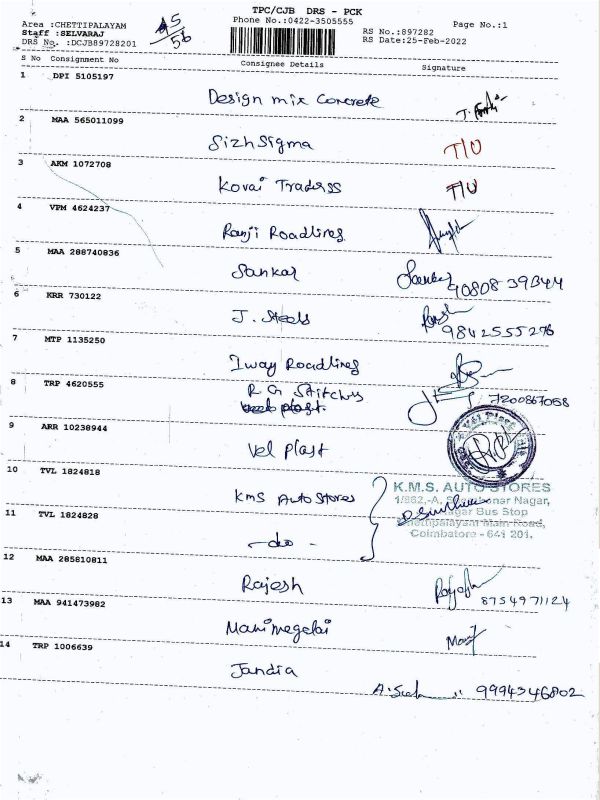 TPC/CJB DRS - PCK
Area :CHETTIPALAYAM
Phone No.:0422-3505555
Page No.:1
Staff :SELVARAJ
RS No.:897282
DRS No. :DCJB89728201
RS Date:25-Feb-2022
45/56
S No Consignment No Consignee Details Signature
1 DPI 5105197
Design mix Concrete
2 MAA 565011099
Sizhsigma T/U
3 AKM 1072708
Kovai Traderss T/U
4 VPM 4624237
Ranji Roadlines
5 MAA 288740836
Sankar
6 KRR 730122
J. Steels 9842555276
7 MTP 1135250
Iway Roadlines
8 TRP 4620555
R G Stitches 7200867058
9 ARR 10238944
Vel plast
10 TVL 1824818
Kms Auto Stores
K.M.S. AUTO STORES
Nagar,
Bus Stop
Main Road,
Coimbatore - 641 201.
11 TVL 1824828
- do -
12 MAA 285810811
Rajesh 8754971124
13 MAA 941473982
Manimegalai
14 TRP 1006639
Jandia
9994346802